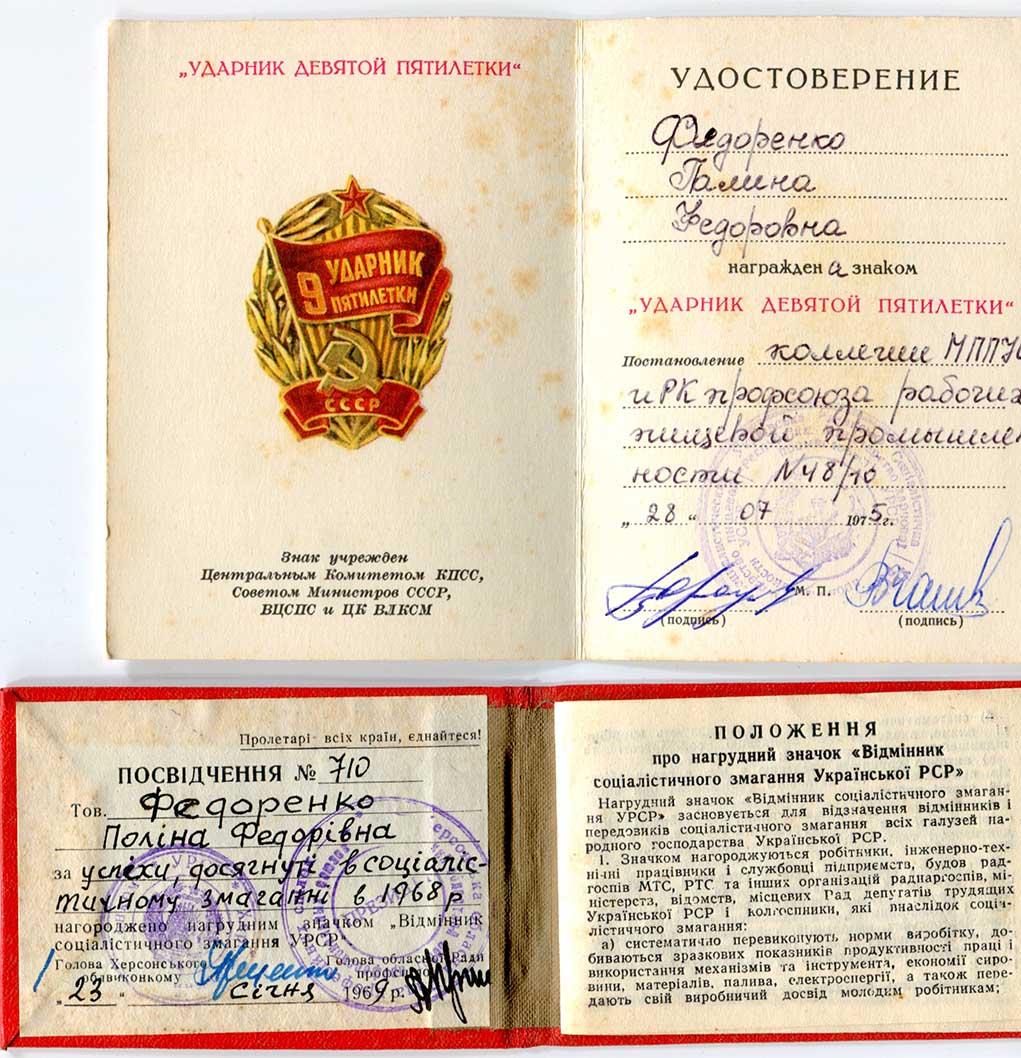 „УДАРНИК ДЕВЯТОЙ ПЯТИЛЕТКИ“
9 УДАРНИК
ПЯТИЛЕТКИ
СССР
Знак учрежден
Центральным Комитетом КПСС,
Советом Министров СССР,
ВЦСПС и ЦК ВЛКСМ
УДОСТОВЕРЕНИЕ
Федоренко
Галина
Федоровна
награжден а знаком
„УДАРНИК ДЕВЯТОЙ ПЯТИЛЕТКИ“
Постановление коллегии
и РК профсоюза рабочих
пищевой промышлен
ности N48/10
„28“ 07 1975г.
М. П.
(подпись) (подпись)
Пролетарі всіх країн, єднайтеся!
ПОСВІДЧЕННЯ № 710
Тов. Федоренко
Поліна Федорівна
за успіхи, досягнуті в соціаліс-
тичному змаганні в 1968 р
нагороджено нагрудним значком „Відмінник
соціалістичного змагання УРСР“
Голова Херсонського Голова обласної Ради
облвиконкому профспілок
„23“ січня 1969 р.
ПОЛОЖЕННЯ
про нагрудний значок «Відмінник
соціалістичного змагання Української РСР»
Нагрудний значок «Відмінник соціалістичного змаган-
ня УРСР» засновується для відзначення відмінників і
передовиків соціалістичного змагання всіх галузей на-
родного господарства Української РСР.
1. Значком нагороджуються робітники, інженерно-тех-
нічні працівники і службовці підприємств, будов рад-
госпів МТС, РТС та інших організацій раднаргоспів, мі-
ністерств, відомств, місцевих Рад депутатів трудящих
Української РСР і колгоспники, які внаслідок соціа-
лістичного змагання:
а) систематично перевиконують норми виробітку, до-
биваються зразкових показників продуктивності праці і
використання механізмів та інструмента, економії сиро-
вини, матеріалів, палива, електроенергії, а також пере-
дають свій виробничий досвід молодим робітникам;